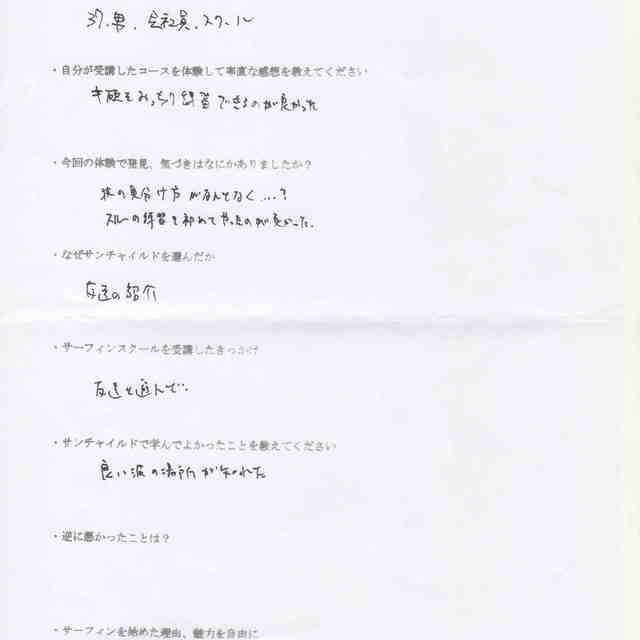 37、男、会社員、スクール
・自分が受講したコースを体験して率直な感想を教えてください
基礎をみっちり練習できるのが良かった
・今回の体験で発見、気づきはなにかありましたか？
波の見分け方がなんとなく...?
スルーの練習を初めてやったのが良かった.
・なぜサンチャイルドを選んだか
友達の紹介
・サーフィンスクールを受講したきっかけ
友達と遊んで..
・サンチャイルドで学んでよかったことを教えてください
良い波の場所が知れた
・逆に悪かったことは？
・サーフィンを始めた理由、魅力を自由に